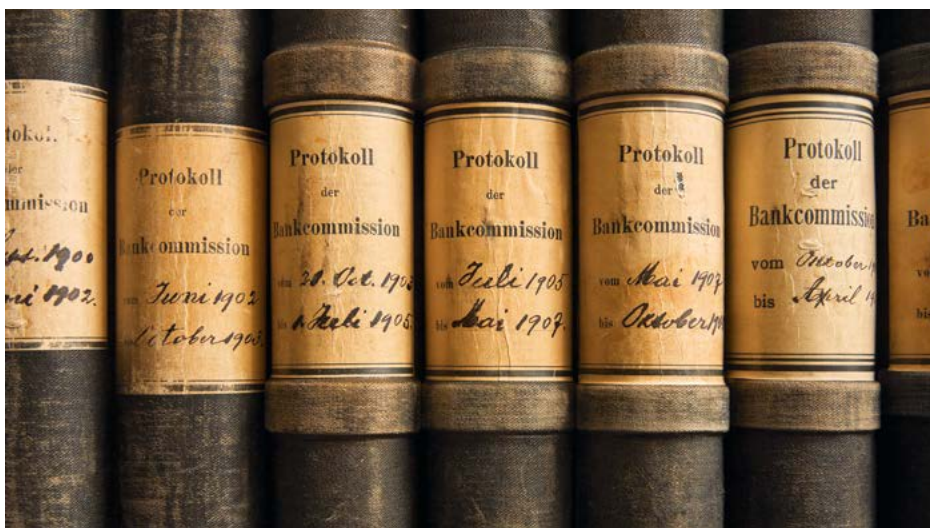 Protokoll
der
Bankcommission
vom Juni 1902
October 1903.
Protokoll
der
Bankcommission
vom 20. Oct. 1903
bis 1. Juli 1905.
Protokoll
der
Bankcommission
vom Juli 1905
bis Mai 1907.
Protokoll
der
Bankcommission
vom Mai 1907
bis Oktober
Protokoll
der
Bankcommission
vom Oktober
bis April
1900
1902.